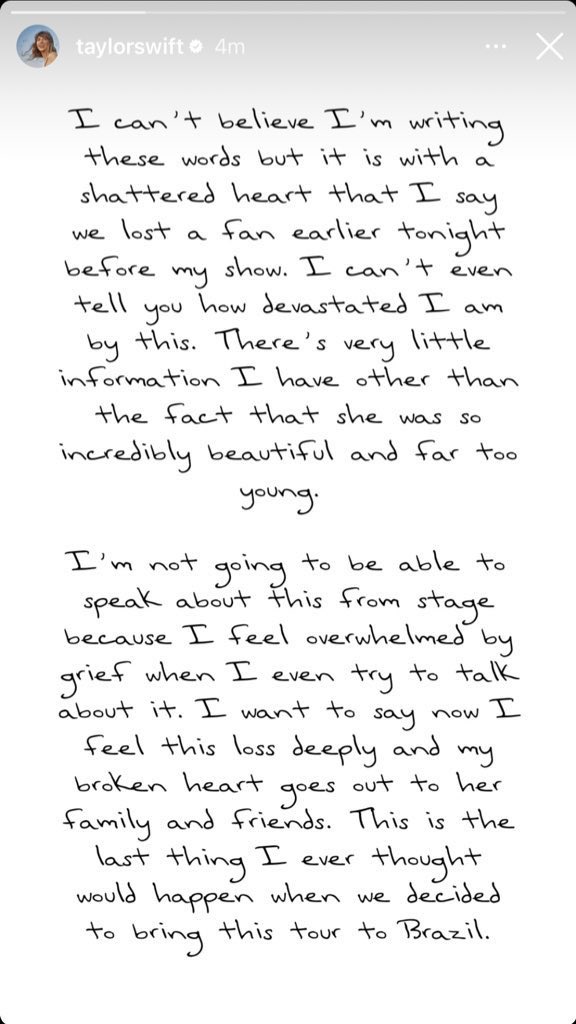 taylorswift 4m
I can't believe I'm writing
these words but it is with a
shattered heart that I say
we lost a fan earlier tonight
before my show. I can't even
tell you how devastated I am
by this. There's very little
information I have other than
the fact that she was so
incredibly beautiful and far too
young.
I'm not going to be able to
speak about this from stage
because I feel overwhelmed by
grief when I even try to talk
about it. I want to say now I
feel this loss deeply and my
broken heart goes out to her
family and friends. This is the
last thing I ever thought
would happen when we decided
to bring this tour to Brazil.